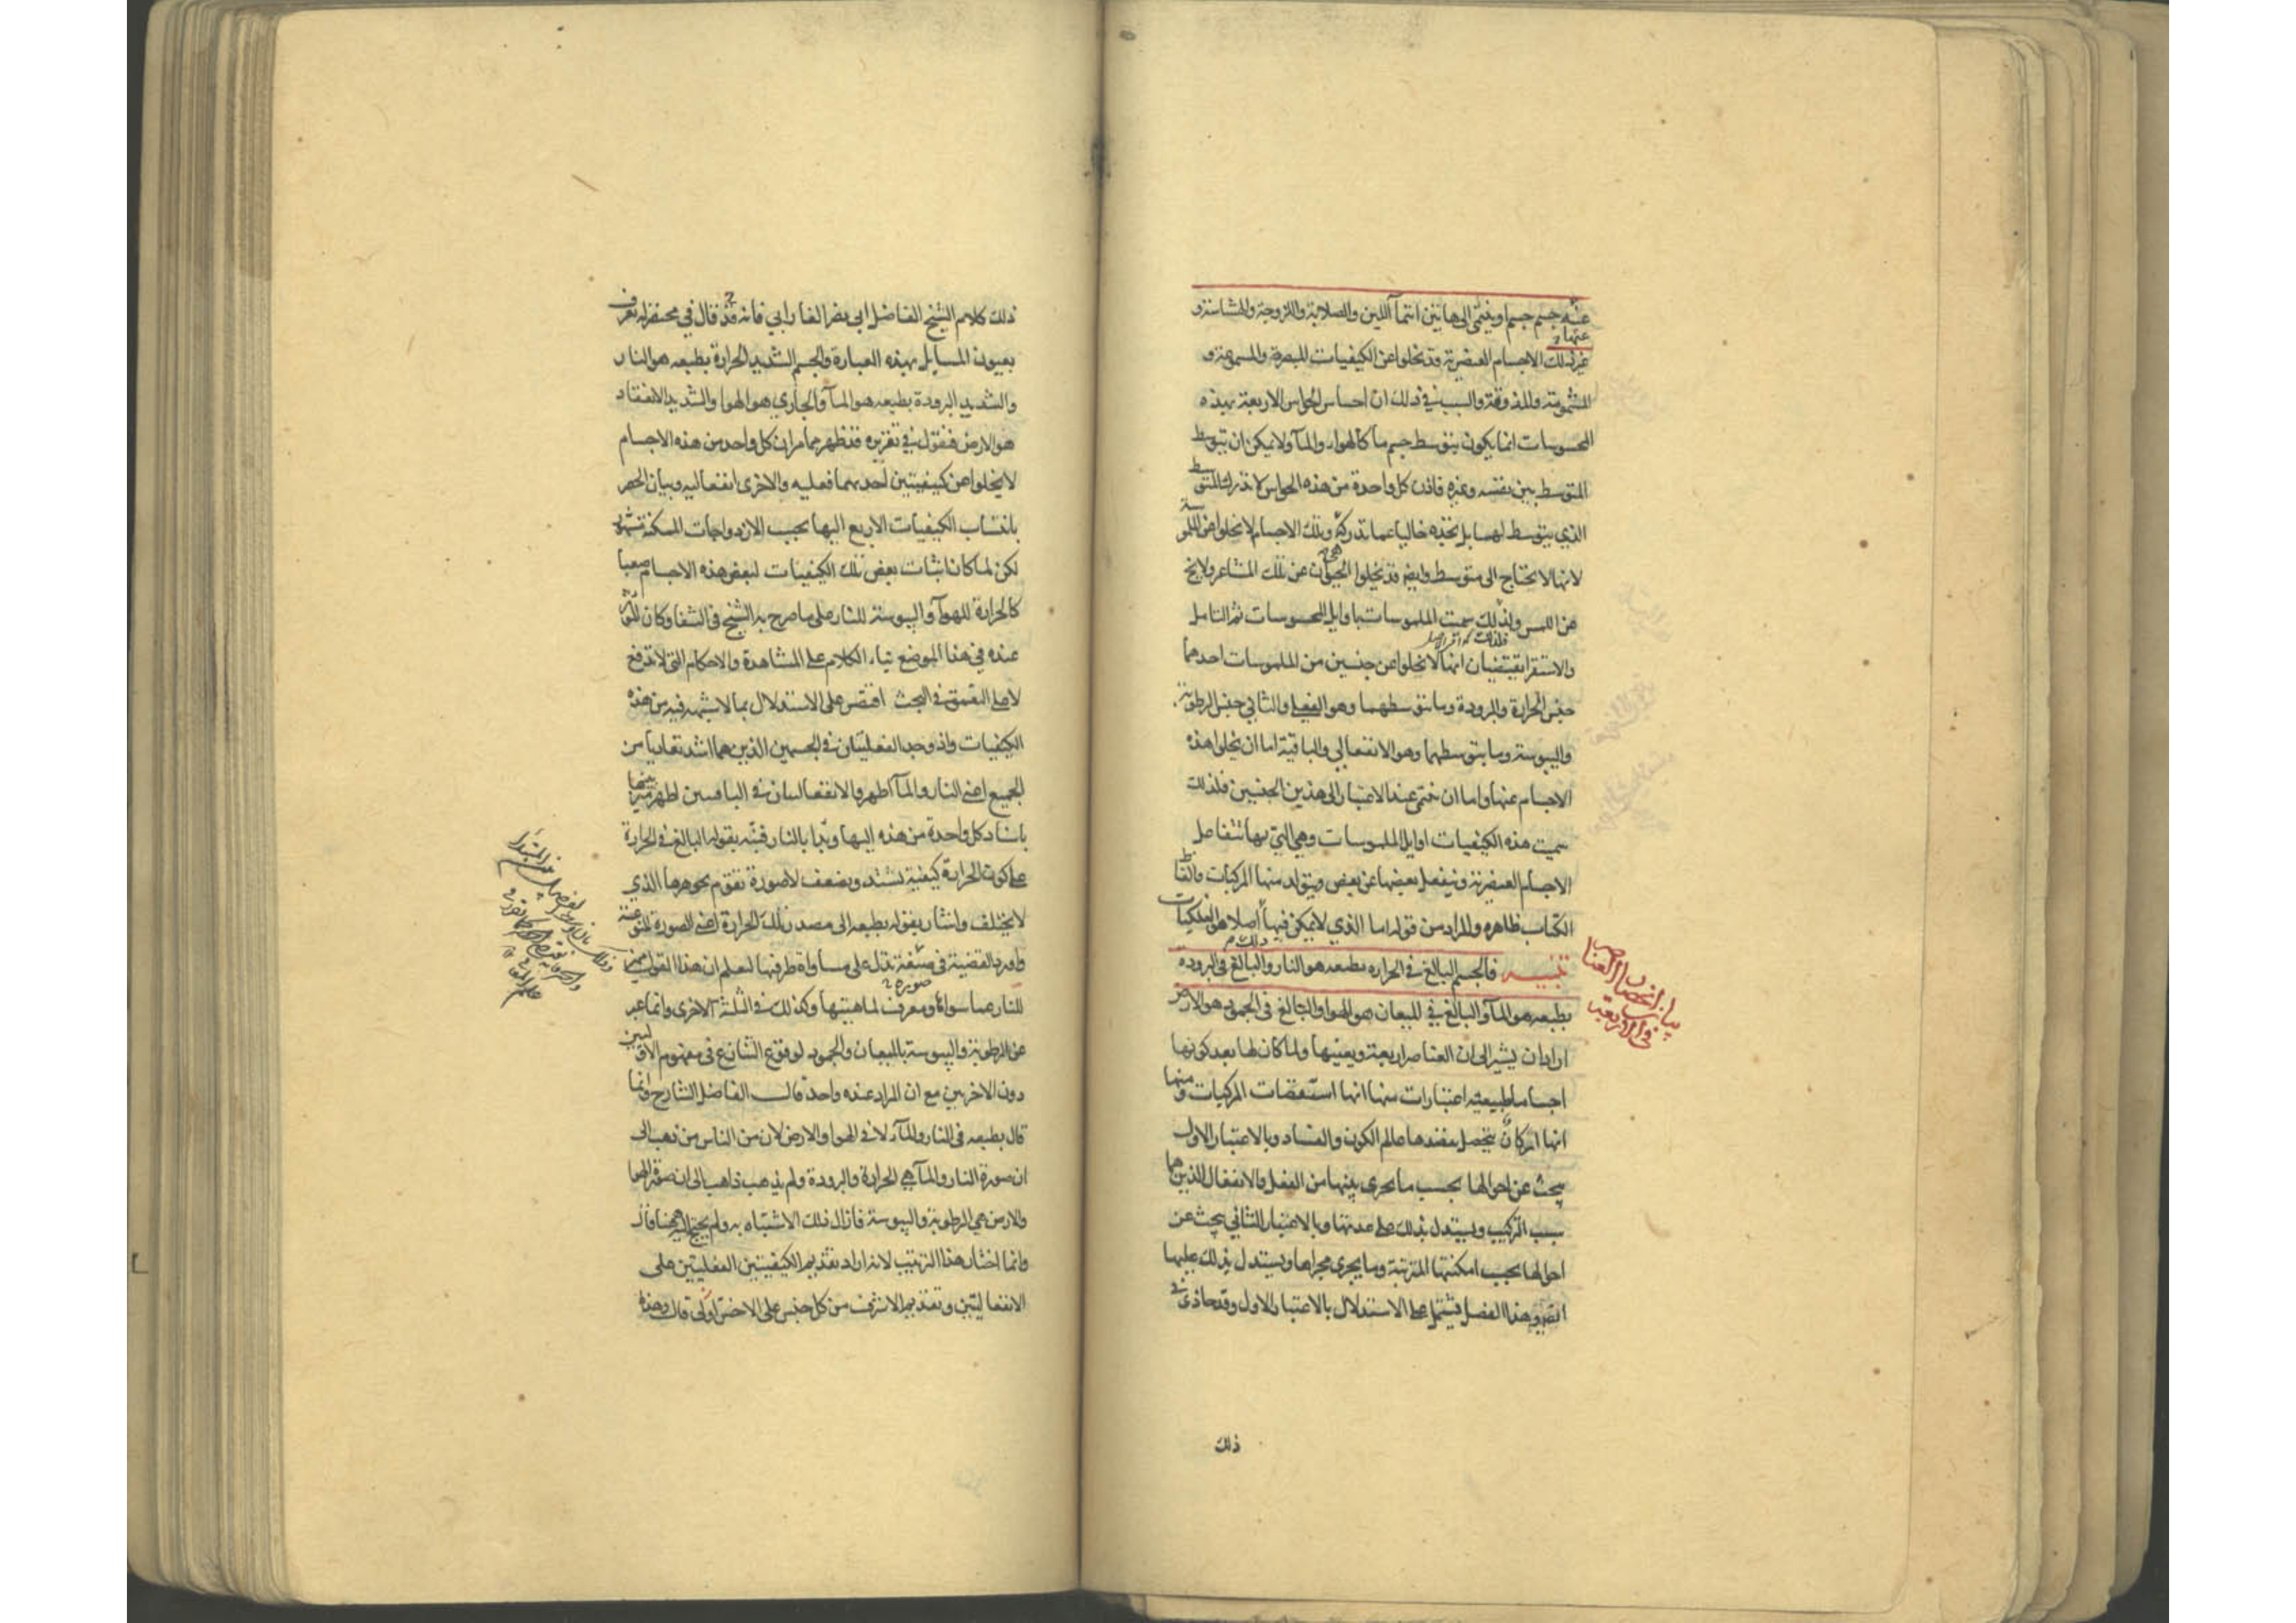 عنه جسم جسم او ينتمى الى هاتين انتمآ اللين والصلابة واللزوجة والهشاشة و
عنها
غير ذلك الاجسام العنصرية قد تخلوا عن الكيفيات المبصرة والمسموعة و
المشمومة والمذوقة والسبب في ذلك ان احساس الحواس الاربعة بهذه
المحسوسات انما يكون بتوسط جسم ما كالهواء والمآ ولا يمكن ان يتوسط
المتوسط بين نفسه وغيره فاذن كل واحدة من هذه الحواس لا تدرك المتوسط
الذي يتوسط لها بل تجده خاليا عما تدركه وتلك الاجسام لا تخلوا عن الملموسة
لانها لا تحتاج الى متوسط وايضا قد تخلوا الحيوان عن تلك المشاعر ولا يخ
عن اللمس ولذلك سميت الملموسات باوايل المحسوسات ثم التامل
والاستقرا يقتضيان انها لا تخلوا عن جنسين من الملموسات احدهما
جنس الحرارة والبرودة وما يتوسطهما وهو الفعلي والثاني جنس الرطوبة
واليبوسة وما يتوسطهما وهو الانفعالي والباقية اما ان يخلوا هذه
الاجسام عنها واما ان تنتمى عند الاعتبار الى هذين الجنسين فلذلك
سميت هذه الكيفيات اوايل الملموسات وهي التي بها تتفاعل
الاجسام العنصرية وينفعل بعضها عن بعض ويتولد منها المركبات والفاظ
الكتاب ظاهره والمراد من قوله اما الذي لا يمكن فيها اصلا هو الفلكيات
تنبيه فالجسم البالغ في الحراره بطبعه هو النار والبالغ في البروده
بيان انحصار العناصر
في الاربعة
بطبعه هو المآ والبالغ في الميعان هو الهوا والبالغ في الجمود هو الارض
اراد ان يشير الى ان العناصر اربعة ويعينها ولما كان لها بعد كونها
اجساما طبيعيه اعتبارات منها انها استقصات المركبات ومنها
انها اركان يتحصل بنضدها عالم الكون والفساد وبالاعتبار الاول
يبحث عن احوالها بحسب ما يجري بينها من الفعل والانفعال الذين هما
سبب التركيب ويستدل بذلك على عدتها وبالاعتبار الثاني يبحث عن
احوالها بحسب امكنتها المترتبة وما يجري مجراها ويستدل بذلك عليها
وهذا الفصل يشتمل على الاستدلال بالاعتبار الاول وقد حاذى في
ذلك
ذلك كلام الشيخ الفاضل ابي نصر الفارابي فانه قد قال في مختصر له يعرف
بعيون المسايل بهذه العبارة والجسم الشديد الحرارة بطبعه هو النار
والشديد البرودة بطبعه هو المآ والجاري هو الهوا والشديد الانعقاد
هو الارض فنقول في تقريره قد ظهر مما مر ان كل واحد من هذه الاجسام
لا يخلوا عن كيفيتين احدهما فعليه والاخرى انفعاليه وبيان الحصر
بانتساب الكيفيات الاربع اليها بحسب الازدواجات الممكنة مشهور
لكن لما كان اثبات بعض تلك الكيفيات لبعض هذه الاجسام صعبا
كالحرارة للهوآ واليبوسة للنار على ما صرح به الشيخ في الشفا وكان
عنده في هذا الموضع بناء الكلام على المشاهدة والاحكام التي لا تدفع
لاهل التعمق في البحث اقتصر على الاستدلال بما لا يشتبه فيه من هذه
الكيفيات واذ وجد الفعليتان في الجسمين الذين هما اشد تعاديا من
الجميع اعني النار والمآ اظهر والانفعاليتان في الباقيين اظهر ميز بينهما
باسناد كل واحدة من هذه اليها وبدا بالنار فنبه بقوله البالغ في الحرارة
على كون الحرارة كيفية تشتد وتضعف لا صورة تقوم بجوهرها الذي
لا يختلف واشار بقوله بطبعه الى مصدر تلك الحرارة اعني الصورة النوعية
واورد القضية في صيغة تدل على مساواة طرفيها ليعلم ان هذا القول مميز
للنار عما سواها ومعرف لماهيتها وكذلك في الثلثة الاخرى وانما عبر
عن الرطوبة واليبوسة بالميعان والجمود لوقوع التنازع في مفهوم الاولين
دون الاخرين مع ان المراد عنده واحد قال الفاضل الشارح وانما
قال بطبعه في النار والمآء لا في الهوا والارض لان من الناس من ذهب الى
ان صورة النار والمآ هي الحرارة والبرودة ولم يذهب ذاهب الى ان صورة الهوا
والارض هي الرطوبة واليبوسة فازال ذلك الاشتباه به ولم يحتج اليه ههنا قال
وانما اختار هذا الترتيب لانه اراد تقديم الكيفيتين الفعليتين على
الانفعاليتين وتقديم الاشرف من كل جنس على الاخس اولى قال وهذه